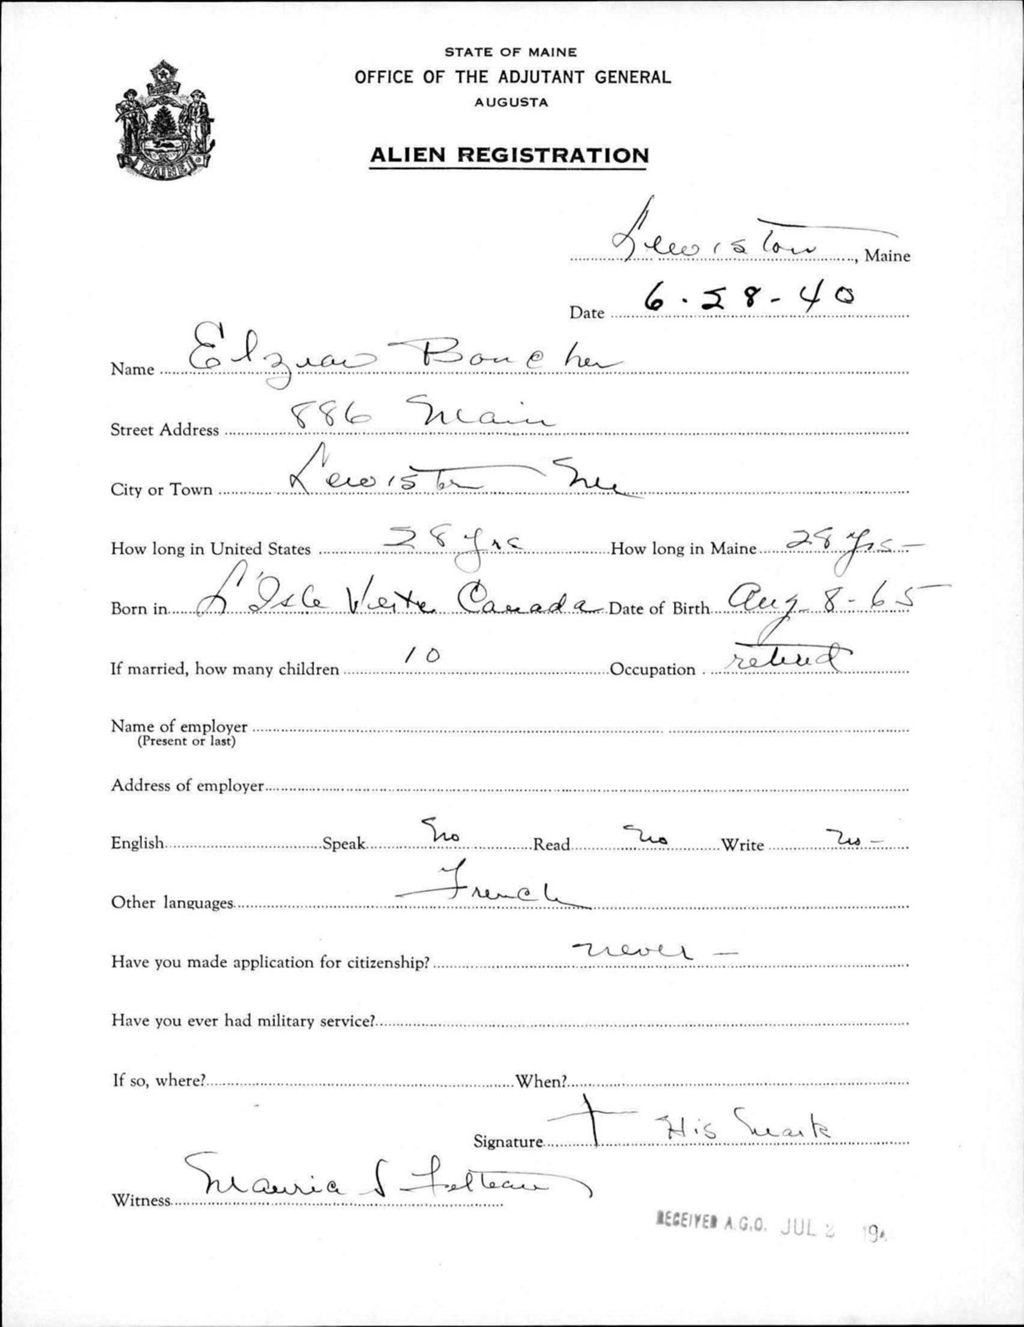 STATE OF MAINE
OFFICE OF THE ADJUTANT GENERAL
AUGUSTA
MAINE
ALIEN REGISTRATION
Lewiston, Maine
Date 6-28-40
Name Elzear Boucher
Street Address 886 Main
City or Town Lewiston Me
How long in United States 28 yrs How long in Maine 28 yrs -
Born in L'Isle Verte Canada Date of Birth Aug 8-65
If married, how many children 10 Occupation retired
Name of employer
(Present or last)
Address of employer
English Speak No Read No Write No -
Other languages French
Have you made application for citizenship? never -
Have you ever had military service?
If so, where? When?
Signature † His Mark
Witness S Felteau
RECEIVED A.G.O. JUL 2 19